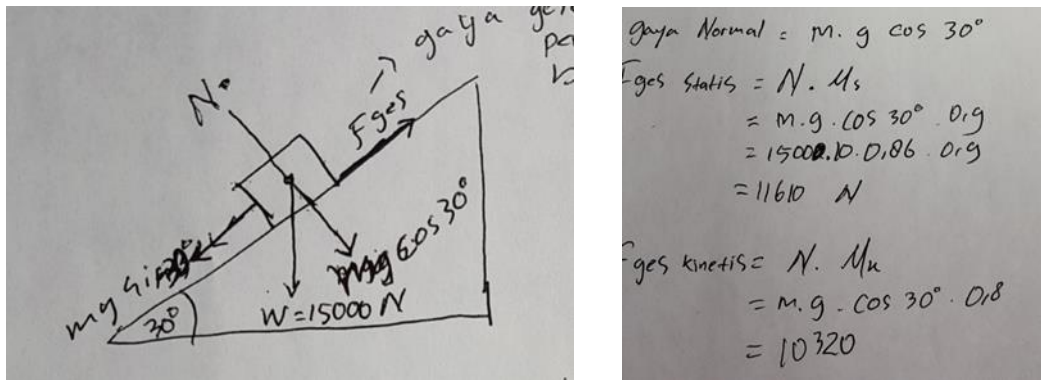 gaya
N
Fges
mg sin 30°
mg cos 30°
30°
W = 15000 N
gaya Normal = m. g cos 30°
Fges statis = N. Ms
= m.g. cos 30° . 0,9
= 1500.10.0,86 . 0,9
= 11610 N
Fges kinetis = N. Mk
= m.g. cos 30° . 0,8
= 10320